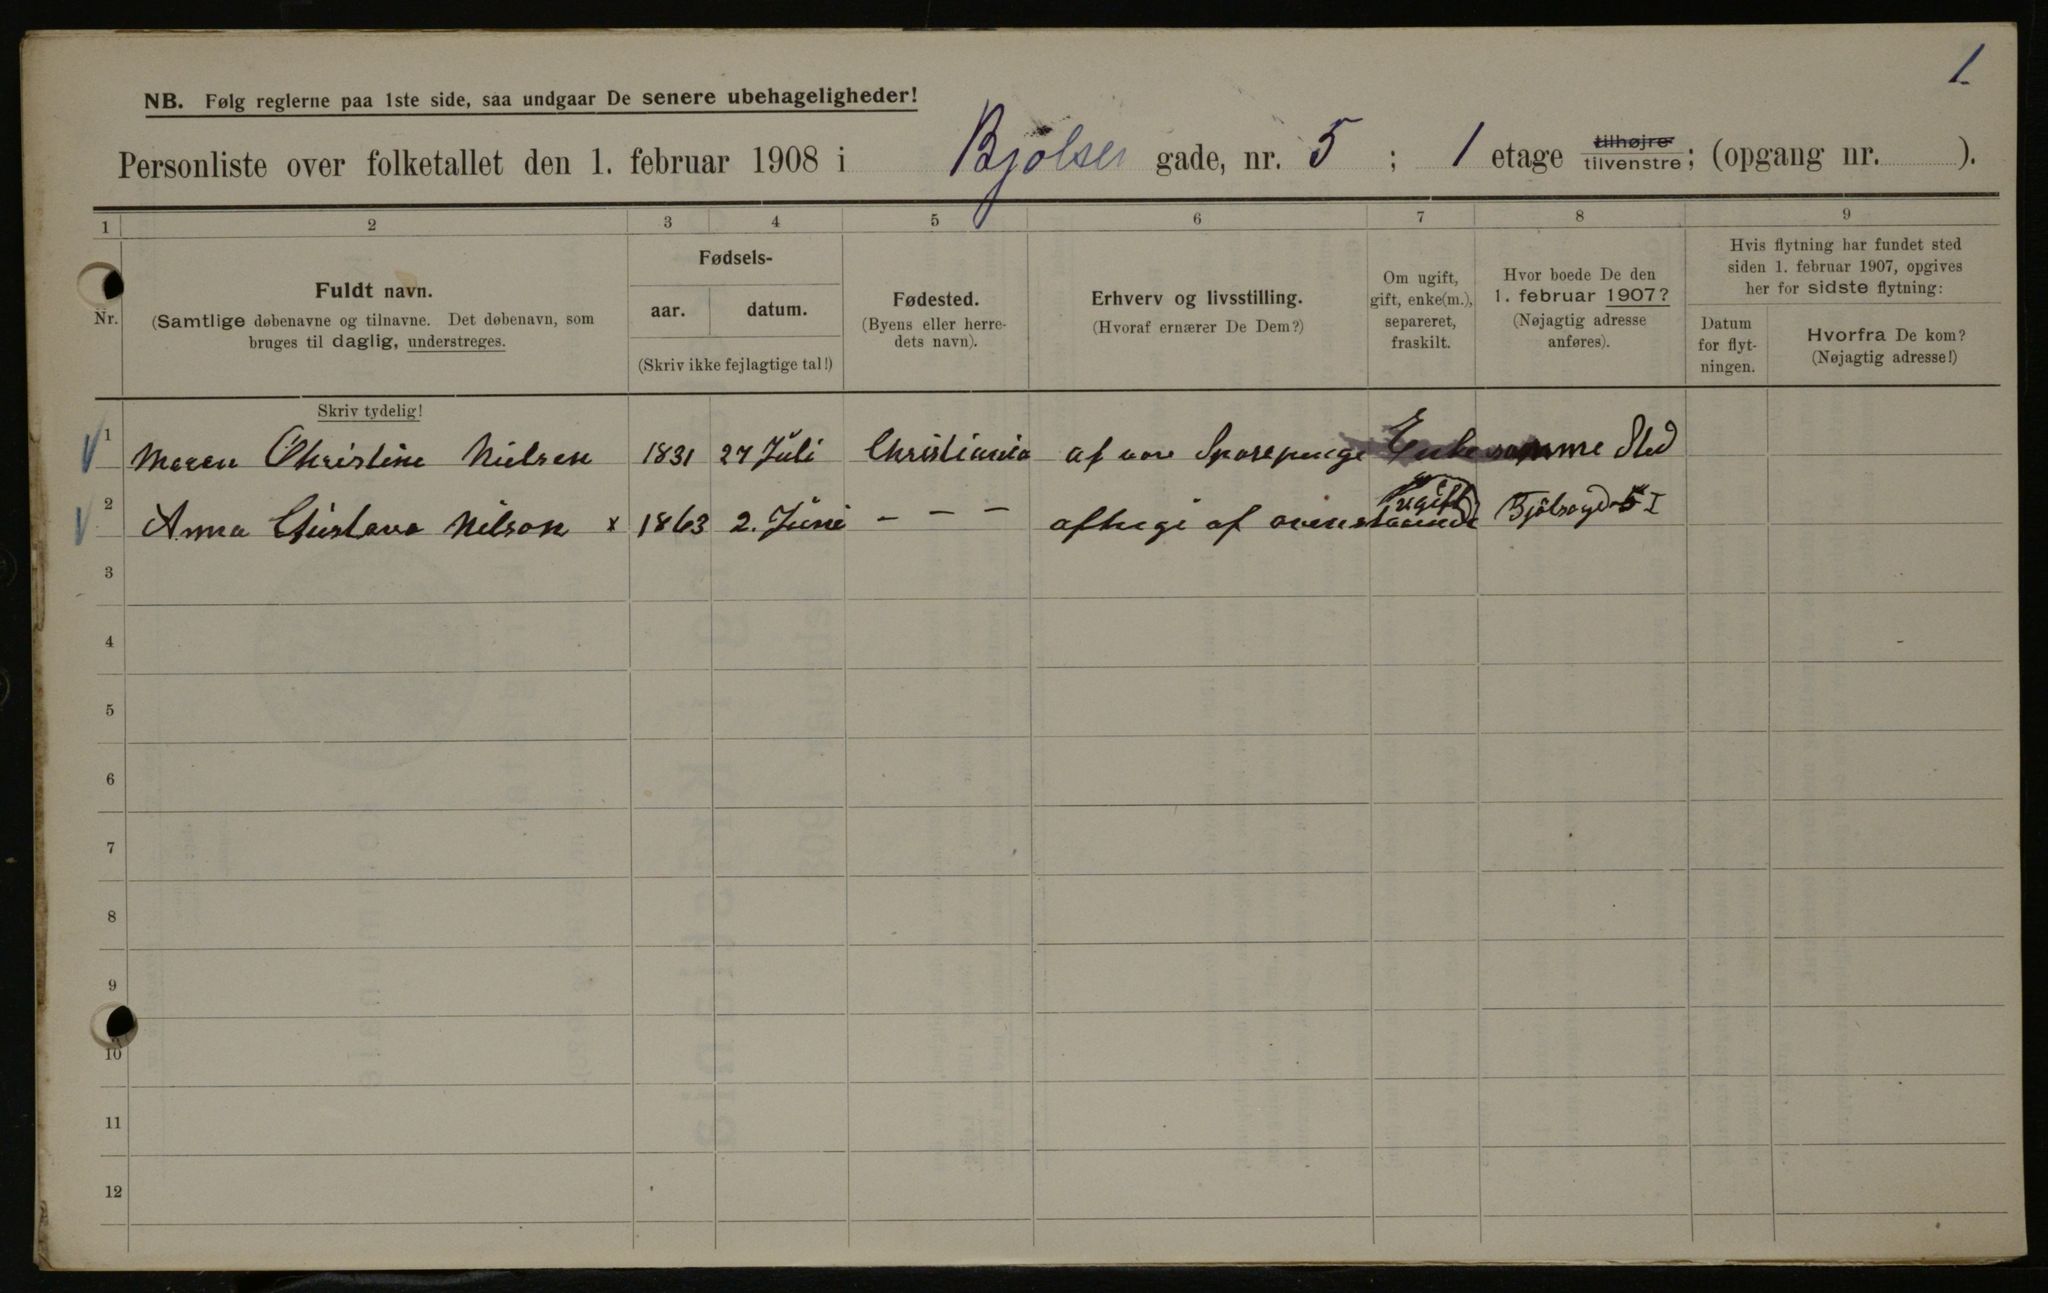 1
NB. Følg reglerne paa 1ste side, saa undgaar De senere ubehageligheder!
Personliste over folketallet den 1. februar 1908 i Bjølsen gade, nr. 5 ; 1 etage tilhøjre tilvenstre; (opgang nr. ).
1 2 3 4 5 6 7 8 9
Nr.
Fuldt navn.
(Samtlige døbenavne og tilnavne. Det døbenavn, som
bruges til daglig, understreges.
Fødsels-
aar. datum.
(Skriv ikke fejlagtige tal!)
Fødested.
(Byens eller herre-
dets navn).
Erhverv og livsstilling.
(Hvoraf ernærer De Dem?)
Om ugift,
gift, enke(m.),
separeret,
fraskilt.
Hvor boede De den
1. februar 1907?
(Nøjagtig adresse
anføres).
Hvis flytning har fundet sted
siden 1. februar 1907, opgives
her for sidste flytning:
Datum
for flyt-
ningen.
Hvorfra De kom?
(Nøjagtig adresse!)
Skriv tydelig!
1 Maren Christine Nielsen 1831 27 Juli Christiania af Sparepenge Enke samme Sted
2 Anna Gustava Nilson x 1863 2. Juni - - - af ovenstaaende ugift Bjølsengd 5 I
3
4
5
6
7
8
9
10
11
12